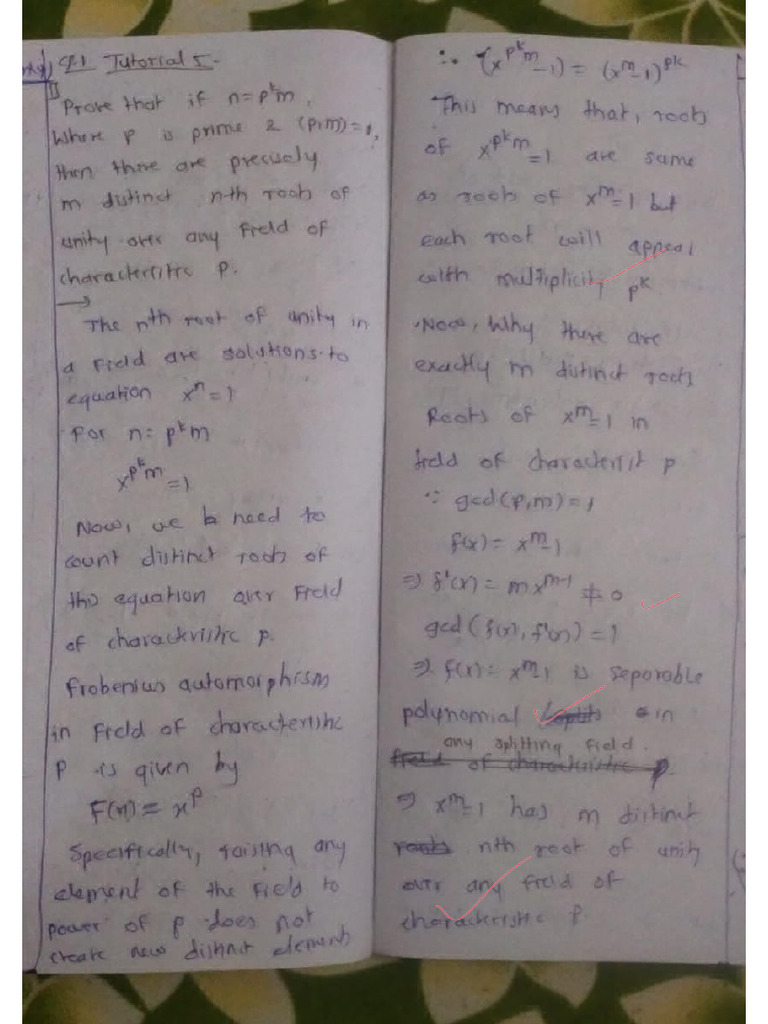 Q.1 Tutorial 5.
1) Prove that if n = p^k m,
Where p is prime & (p,m)=1,
then there are precisely
m distinct nth roots of
unity over any field of
characteristic p.
→
The nth root of unity in
a field are solutions to
equation x^n = 1
For n = p^k m
x^{p^k m} = 1
Now, we need to
count distinct roots of
this equation over field
of characteristic p.
Frobenius automorphism
in field of characteristic
p is given by
F(x) = x^p
Specifically, raising any
element of the field to
power of p does not
create new distinct element
∴ (x^{p^k m} - 1) = (x^m - 1)^{p^k}
This means that, roots
of x^{p^k m} = 1 are same
as roots of x^m = 1 but
each root will appear
with multiplicity p^k
Now, Why there are
exactly m distinct roots
Roots of x^m = 1 in
field of characterist p
∵ gcd(p,m) = 1
f(x) = x^m - 1
⇒ f'(x) = m x^{m-1} ≠ 0
gcd(f(x), f'(x)) = 1
⇒ f(x) = x^m - 1 is seporable
polynomial in
any splitting field.
field of characteristic p.
⇒ x^m = 1 has m distinct
roots nth root of unity
over any field of
characteristic p.